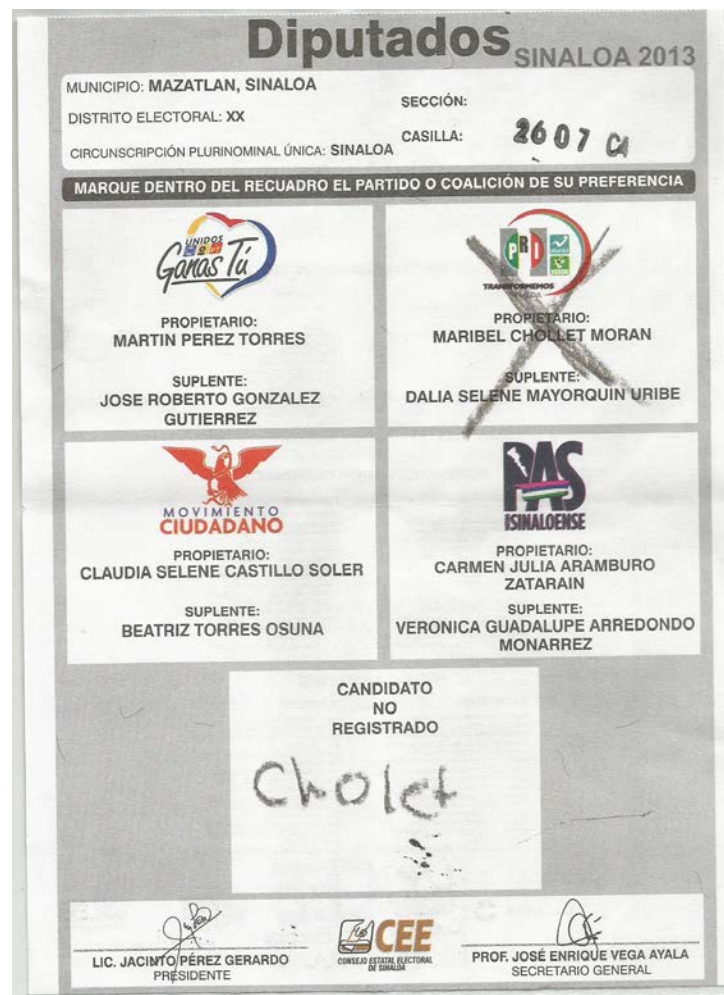 Diputados
SINALOA 2013
MUNICIPIO: MAZATLAN, SINALOA
DISTRITO ELECTORAL: XX
CIRCUNSCRIPCIÓN PLURINOMINAL ÚNICA: SINALOA
SECCIÓN:
CASILLA:
2607 C1
MARQUE DENTRO DEL RECUADRO EL PARTIDO O COALICIÓN DE SU PREFERENCIA
UNIDOS
Ganas Tú
PROPIETARIO:
MARTIN PEREZ TORRES
SUPLENTE:
JOSE ROBERTO GONZALEZ
GUTIERREZ
PRI
VERDE
TRANSFORMEMOS
PROPIETARIO:
MARIBEL CHOLLET MORAN
SUPLENTE:
DALIA SELENE MAYORQUIN URIBE
MOVIMIENTO
CIUDADANO
PROPIETARIO:
CLAUDIA SELENE CASTILLO SOLER
SUPLENTE:
BEATRIZ TORRES OSUNA
PAS
SINALOENSE
PROPIETARIO:
CARMEN JULIA ARAMBURO
ZATARAIN
SUPLENTE:
VERONICA GUADALUPE ARREDONDO
MONARREZ
CANDIDATO
NO
REGISTRADO
Cholet
LIC. JACINTO PÉREZ GERARDO
PRESIDENTE
CEE
CONSEJO ESTATAL ELECTORAL
DE SINALOA
PROF. JOSÉ ENRIQUE VEGA AYALA
SECRETARIO GENERAL